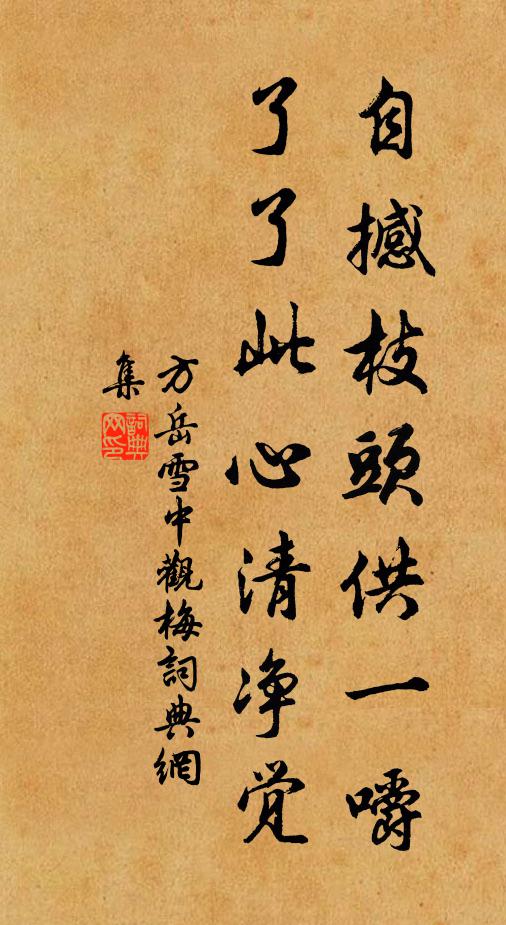 自撼枝頭供一嚼
了了此心清净觉
方岳雪中觀梅詞典網
集
詞典网印